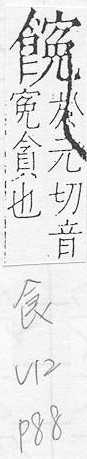 於元切音
寃貪也
食
V12
p88